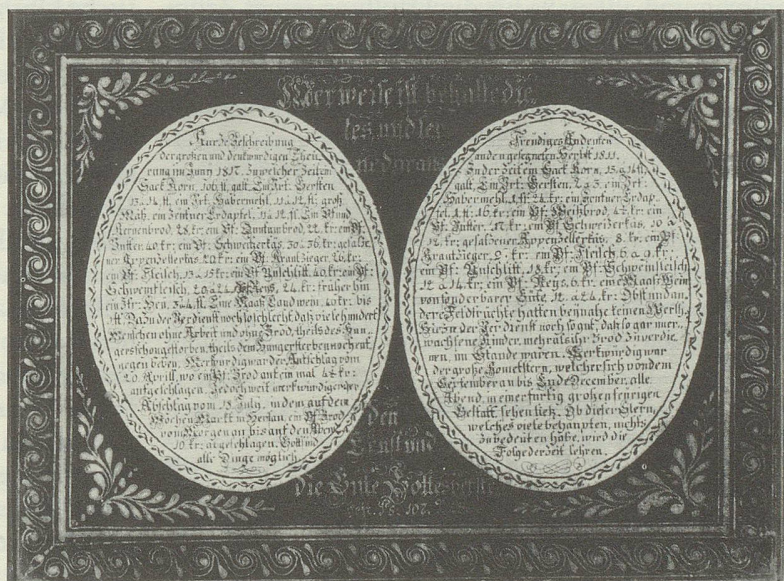 Wer weise ist behalte die
ses und ler
ne daraus
Kurze Beschreibung
der großen und denkwürdigen Theu
rung im Juny 1817. Zu welcher Zeit ein
Sack Korn, 106 fl. galt. Ein Zrt. Gersten
13 a 14 fl. ein Zrt. Habermehl, 11 a 12 fl. groß
Mäß. ein Zentner Erdäpfel, 11 a 12 fl. Ein Pfund
Kernenbrod, 28 kr. ein Pf. 22. kr. ein Pf.
Butter, 40 kr. ein Pf. Schweizerkäs, 30 a 36 kr. gesalze
ner Appenzellerkäs, 20 kr. ein Pf. Krautzieger, 26 kr.
ein Pf. Fleisch, 13 a 15 kr. ein Pf. Unschlitt, 40 kr. ein Pf.
Schweinfleisch, 20 a 24 Pf. Reys, 24. kr. früher hin
ein Ztr. Heu, 3 a 4 fl. Eine Maaß Landwein, 40 kr. bis
1 fl. Da nun der Verdienst noch so schlecht daß viele hundert
Menschen ohne Arbeit und ohne Brod, theils des Hun
gers schon gestorben, theils dem Hungersterben noch ent
gegen beben. Merkwürdig war der Aufschlag vom
20. Aprill, wo ein Pf. Brod auf ein mal 4 kr.
aufgeschlagen. Jedoch weit merkwürdiger der
Abschlag vom 13. July, in dem auf dem
Wochen Markt in Herisau, ein Pf. Brod
vom Morgen an bis auf den Abend
10 kr. abgeschlagen. Gott sind
alle Dinge möglich.
Freudiges Andenken
an den gesegneten Herbst 1811.
Zu der Zeit ein Sack Korn, 13 a 14 fl.
galt. Ein Zrt. Gersten, 2 a 3. ein Zrt.
Habermehl, 1 fl. 24 kr. ein Zentner Erdäp
fel, 1 fl. 16. kr. ein Pf. Weißbrod, 4 kr. ein
Pf. Butter, 17. kr. ein Pf. Schweizerkäs, 10 a
12. kr. gesalzener Appenzellerkäs, 8. kr. ein Pf.
Krautzieger, 9. kr. ein Pf. Fleisch, 6 a 9 kr.
ein Pf. Unschlitt, 18 kr. ein Pf. Schweinfleisch,
12 a 14. kr. ein Pf. Reys, 6. kr. eine Maaß Wein
von sonderbarer Güte, 12 a 24 kr. Obst und an
dere Feldfrüchte hatten beynahe keinen Werth.
Hierin der Verdienst noch so gut, daß so gar uner
wachsene Kinder, mehr als ihr Brod zu verdie
nen, im Stande waren. Merkwürdig war
der große Kometstern, welcher sich von dem
September an bis Ende December, alle
Abend, in einer furtig großen feurigen
Gestalt sehen ließ. Ob dieser Stern,
welches viele behaupten, nichts
zu bedeuten habe, wird die
Folge der Zeit lehren.
den
Ernst und
die Güte Gottes
Ps. 107.